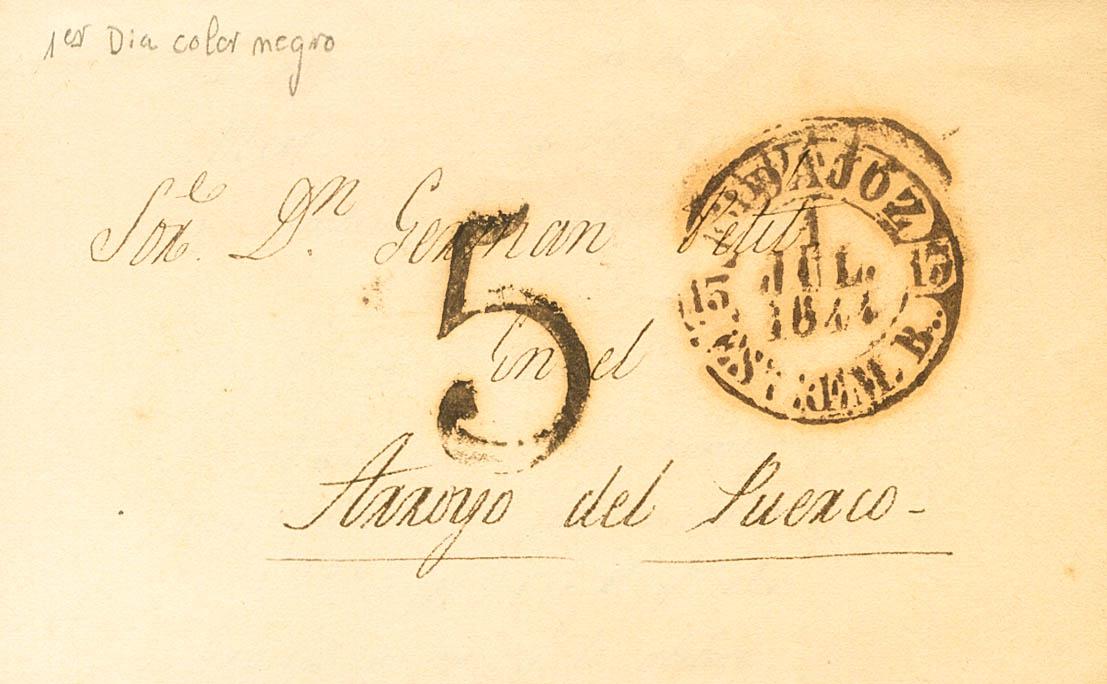 1er Dia color negro
BADAJOZ
Sore. Dn. German Petit
1
JUL.
1844
15
15
ESTREM. B.
5
En el
Arroyo del Puerco-